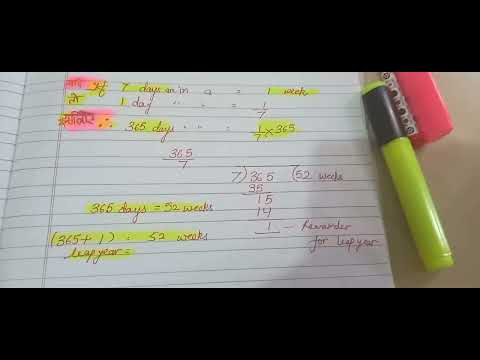 यदि If 7 days are in a = 1 week
तो 1 day " " = 1/7
इसलिए ∴ 365 days " " = 1/7 × 365
365/7
7) 365 (52 weeks
35
15
14
1 — Remainder for leap year
365 days = 52 weeks
(365+1) = 52 weeks
leap year =